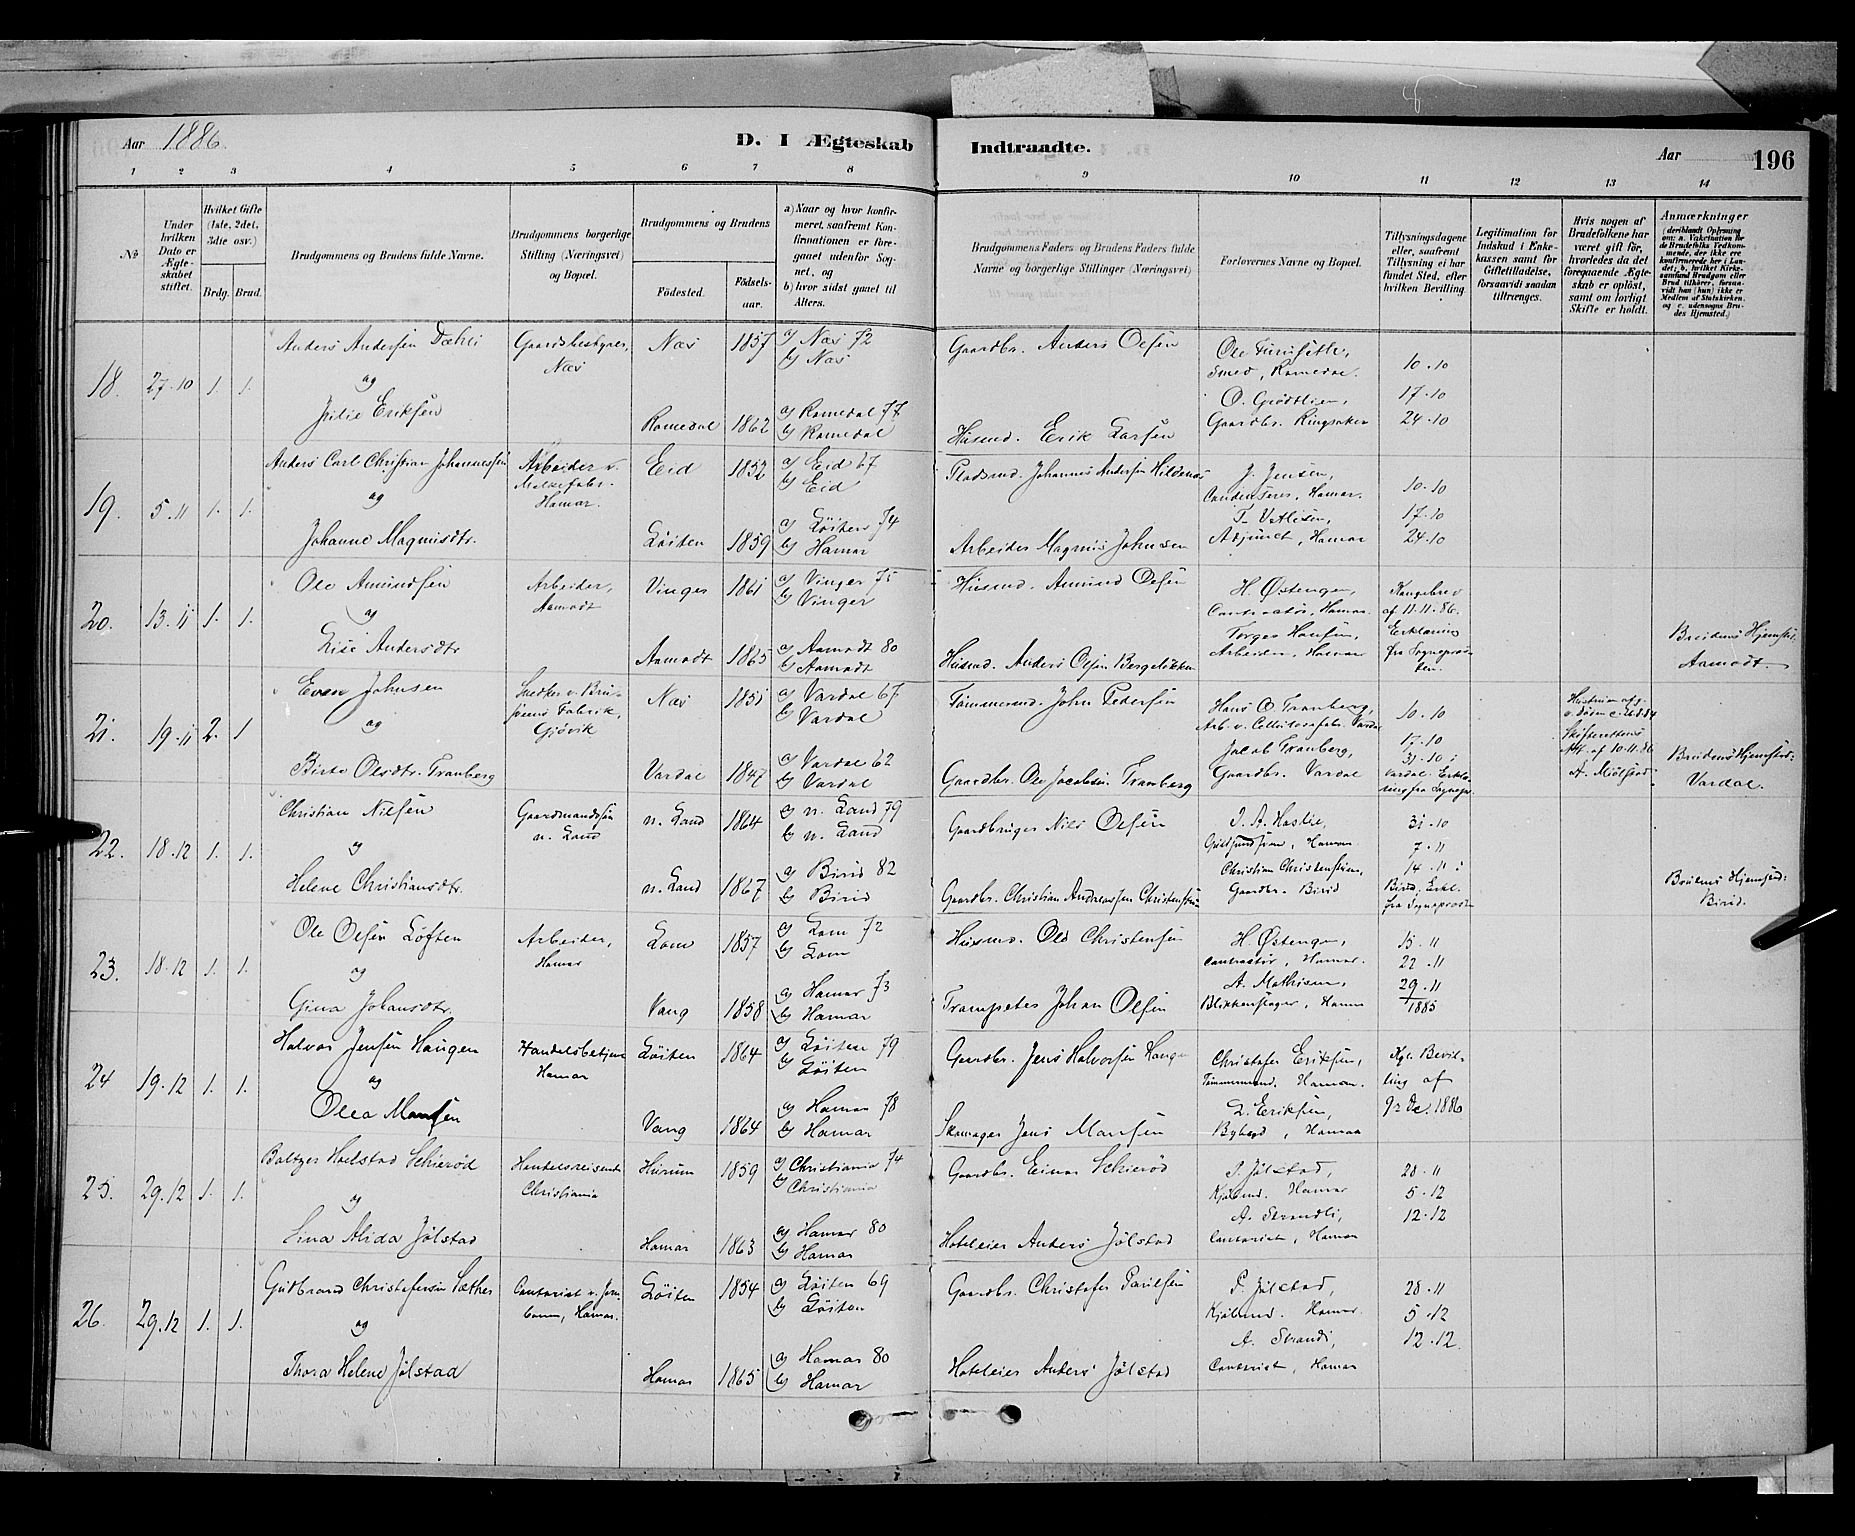 Aar 1886.
D. I Ægteskab Indtraadte.
Aar 196
1 2 3 4 5 6 7 8 9 10 11 12 13 14
№
Under hvilken Dato er Ægteskabet stiftet.
Hvilket Gifte (1ste, 2det, 3die osv.)
Brdg. Brud.
Brudgommens og Brudens fulde Navne.
Brudgommens borgerlige Stilling (Næringsvei) og Bopæl.
Brudgommens og Brudens
Födested. Födselsaar.
a) Naar og hvor konfirmeret, saafremt Konfirmationen er foregaaet udenfor Sognet, og
b) hvor sidst gaaet til Alters.
Brudgommens Faders og Brudens Faders fulde Navne og borgerlige Stillinger (Næringsvei)
Forlovernes Navne og Bopæl.
Tillysningsdagene eller, saafremt Tillysning ei har fundet Sted, efter hvilken Bevilling.
Legitimation for Indskud i Enkekassen samt for Giftetilladelse, forsaavidt saadan tiltrænges.
Hvis nogen af Brudefolkene har været gift för, hvorledes da det foregaaende Ægteskab er oplöst, samt om lovligt Skifte er holdt.
Anmærkninger
18. 27.10 1. 1. Anders Andersen Dæhli
og
Julie Eriksen
Gaardsbestyrer, Næs
Næs 1857 a) Næs 72
b) Næs
Romedal 1862 a) Romedal 77
b) Romedal
Gaardbr. Anders Olsen
Husmd. Erik Larsen
Smed, Romedal.
Gaardbr. Ringsaker
10.10
17.10
24.10
19. 5.11 1. 1. Anders Carl Christian Johannessen
og
Johanne Magnusdtr.
Arbeider v. Melkefabr. Hamar.
Eid 1852 a) Eid 67
b) Eid
Löiten 1859 a) Löiten 74
b) Hamar
Pladsmd. Johannes Andersen Hildenæs
Arbeider Magnus Johnsen
J. Jensen,
Condenserer, Hamar.
Adjunct, Hamar
10.10
17.10
24.10
20. 13.11 1. 1. Ole Amundsen
og
Lise Andersdtr
Arbeider, Aamodt
Vinger 1861 a) Vinger 75
b) Vinger
Aamodt 1865 a) Aamodt 80
b) Aamodt
Husmd. Amund Olsen
Husmd. Anders Olsen Bergeløkken
H. Østengen,
Contractör, Hamar.
Torger Hansen,
Arbeider, Hamar
Kongebrev
af 11.11.86.
Erklæring
fra Sognepræsten.
Brudens Hjemsted:
Aamodt.
21. 19.11 2. 1 Even Johnsen
og
Birte Olsdtr. Tranberg
Gjövik.
Næs 1851 a) Vardal 67
b) Vardal
Vardal 1847 a) Vardal 62
b) Vardal
Tömmermd. John Pedersen
Gaardbr. Ole Jacobsen Tranberg
Hans O. Tranberg,
Arb. v. Cellulosefabr. Vardal
Jacob Tranberg,
Gaardbr. Vardal
10.10
17.10
31.10 i
Vardal. Erklæring fra Sognepr.
Skifterettens
Att. af 10.11.86
A. Mjölstad
Brudens Hjemsted:
Vardal.
22. 18.12 1. 1. Christian Nilsen
og
Helene Christiansdtr.
Gaardmandssön
n. Land
n. Land 1864 a) n. Land 79
b) n. Land
n. Land 1867 a) Birid 82
b) Birid
Gaardbruger Nils Olsen
Gaardbr. Christian Andreassen Christenstuen
Christian Christenstuen,
Gaardbr. Birid
31.10
7.11
14.11 i
Birid, Erkl.
fra Sogneprsten
Brudens Hjemsted:
Birid.
23. 18.12 1. 1. Ole Olsen Löften
og
Gina Johansdtr.
Arbeider,
Hamar
Lom 1857 a) Lom 72
b) Lom
Vang 1858 a) Hamar 73
b) Hamar
Husmd. Ole Christensen
Trompeter Johan Olsen
H. Østengen,
Contractör, Hamar.
A. Mathisen,
Blikkenslager, Hamar
15.11
22.11
29.11
1885
24 19.12 1. 1. Halvor Jensen Haugen
og
Olea Monsen
Handelsbetjent
Hamar
Löiten 1864 a) Löiten 79
b) Löiten
Vang 1864 a) Hamar 78
b) Hamar
Gaardbr. Jens Halvorsen Haugen
Skomager Jens Monsen
Christofer Eriksen,
Tömmermand, Hamar.
L. Eriksen,
Bybud, Hamar
Kgl. Bevilling af
9s Dec. 1886
25. 29.12 1. 1. Baltzer Holstad Schieröd
og
Lina Alida Jölstad
Handelsreisende
Christiania
Hurum 1859 a) Christiania 74
b) Christiania
Hamar 1863 a) Hamar 80
b) Hamar
Gaardbr. Einar Schieröd
Hoteleier Anders Jölstad
P. Jölstad,
Kjöbmd. Hamar
A. Strandli,
Contorist, Hamar
28.11
5.12
12.12
26. 29.12 1. 1. Gudbrand Christofersen Sæther
og
Thora Helene Jölstad
Contorist v. Jernbanen, Hamar.
Löiten 1854 a) Löiten 69
b) Löiten
Hamar 1865 a) Hamar 80
b) Hamar
Gaardbr. Christofer Paulsen
Hoteleier Anders Jölstad
P. Jölstad,
Kjöbmd. Hamar.
A. Strandli,
Contorist, Hamar
28.11
5.12
12.12.